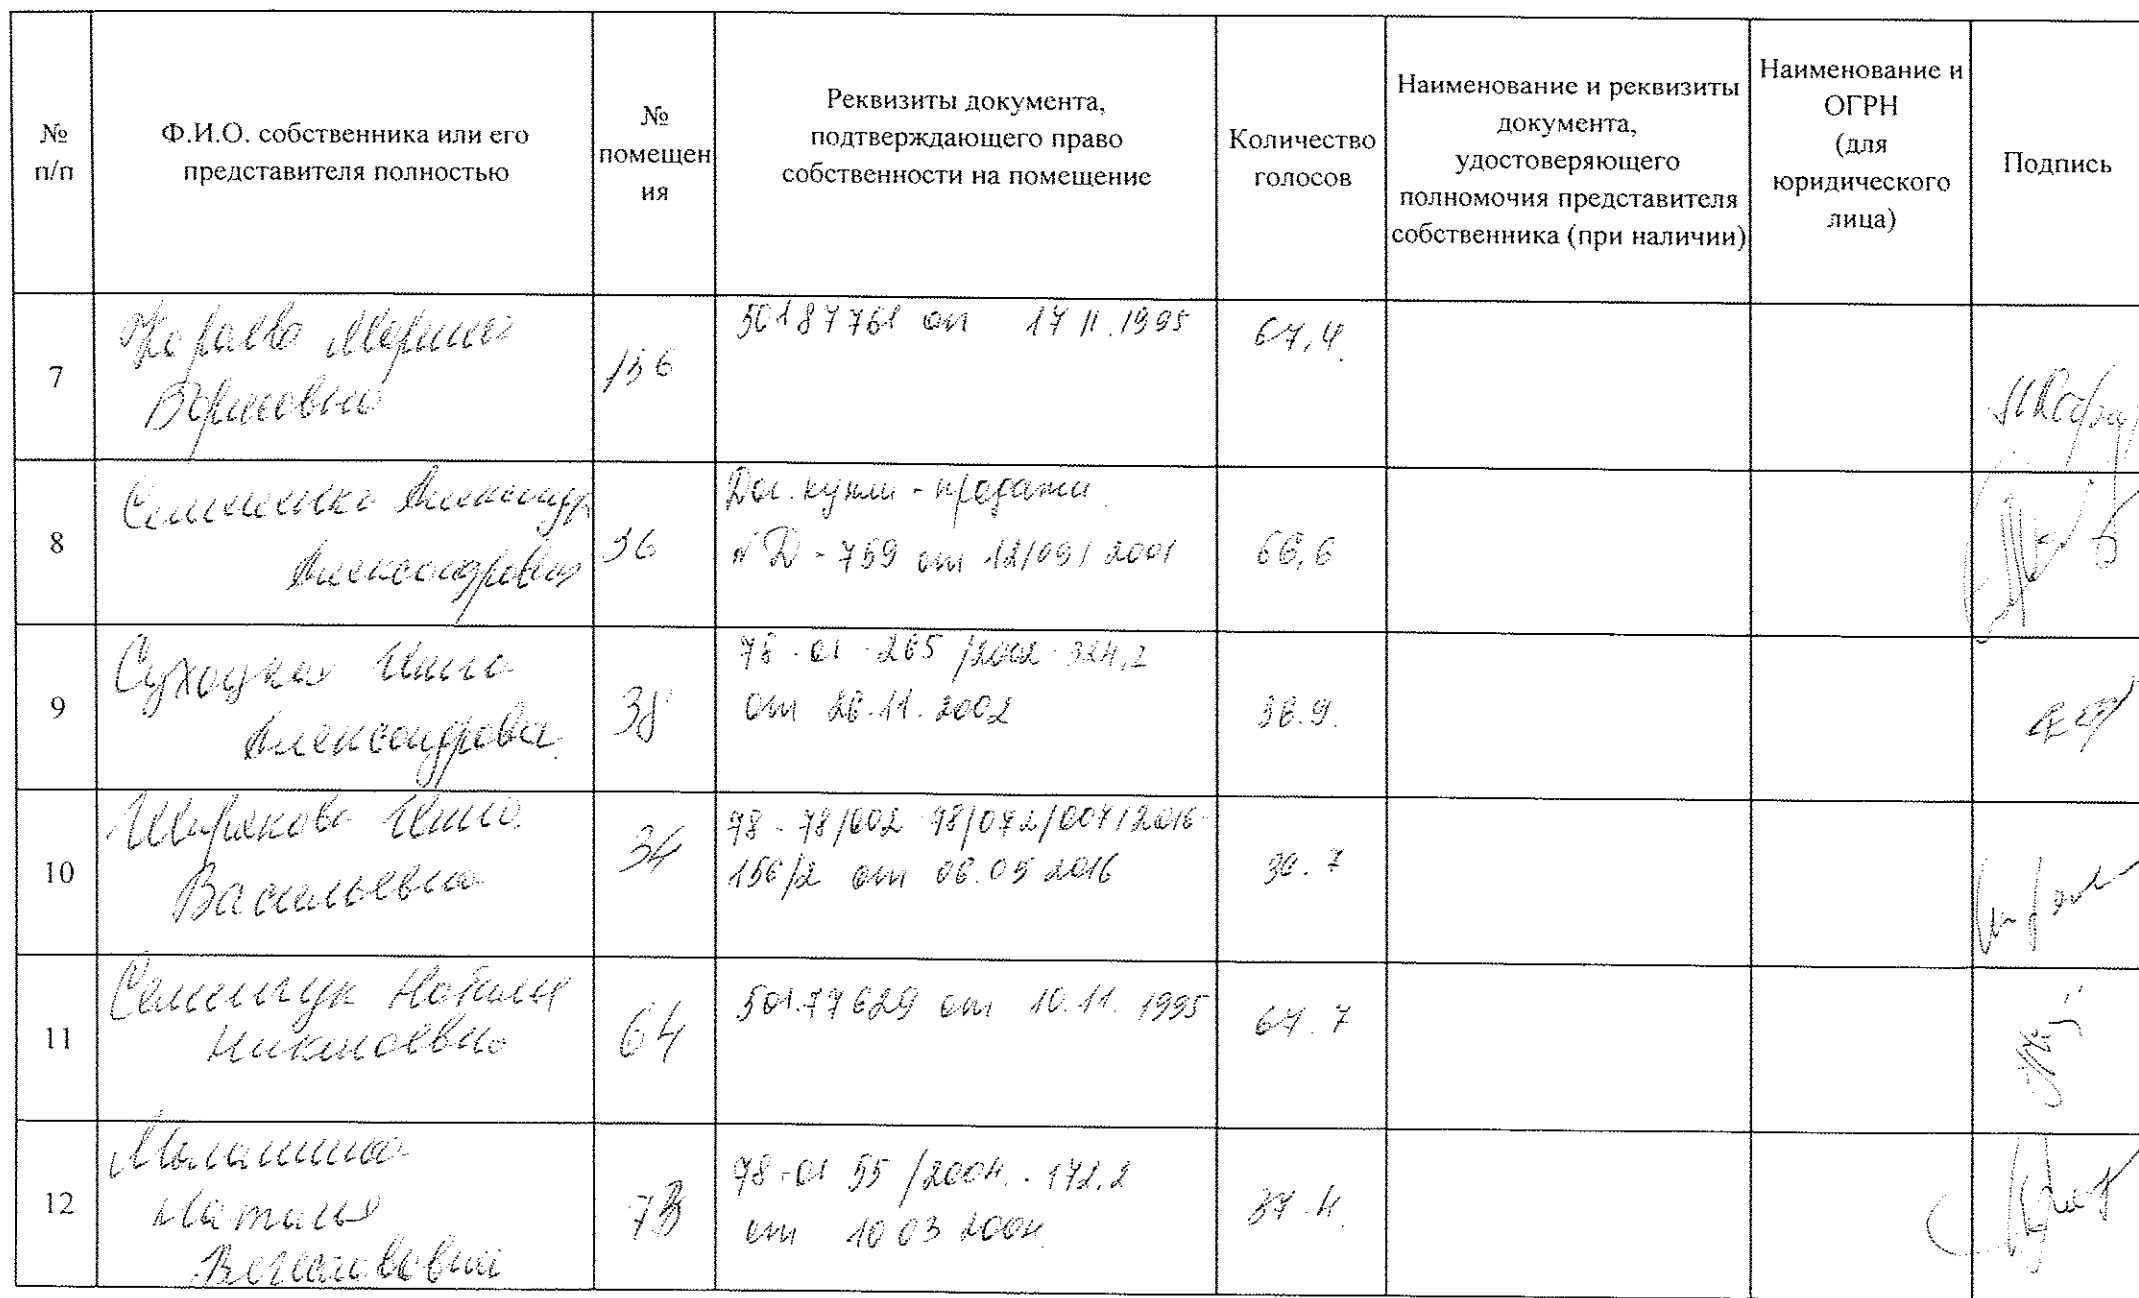 № п/п
Ф.И.О. собственника или его представителя полностью
№ помещения
Реквизиты документа, подтверждающего право собственности на помещение
Количество голосов
Наименование и реквизиты документа, удостоверяющего полномочия представителя собственника (при наличии)
Наименование и ОГРН (для юридического лица)
Подпись
7
Марина
Борисовна
156
50187761 от 17 11.1995
67,4
8
Александр
Александрович
36
Дог. купли - продажи
№ Д - 759 от 12/09/2001
66,6
9
Сухоцкая Инна
Александровна
38
78-01-265/2002-324,2
от 26.11.2002
38.9.
10
Ширякова Инна
Васильевна
34
78-78/002-78/072/007/2016-
156/2 от 06.05 2016
30.7
11
Семенчук Наталья
64
501.77629 от 10.11. 1995
67.7
12
Наталья
Вячеславовна
73
78-01 55 /2004. - 172.2
от 10 03 2004
37.4.